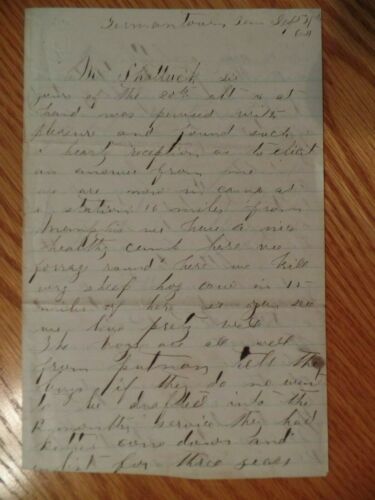 Germantown, Ten Sept
Mr Shattuck sir
yours of the 20th ult is at
hand was perused with
plesure and found such
a hearty reception as to elicit
an answer from me
we are now in camp at
a station 16 miles from
Memphis we have a nice
healthy camp here we
forrage round here we kill
evry sheep hog cow in 15
miles of here so you see
we live prety well
The boys are all well
from putnam tell the
boys if they do no want
to be drafted into the
months service they had
better come down and
inlist for three years